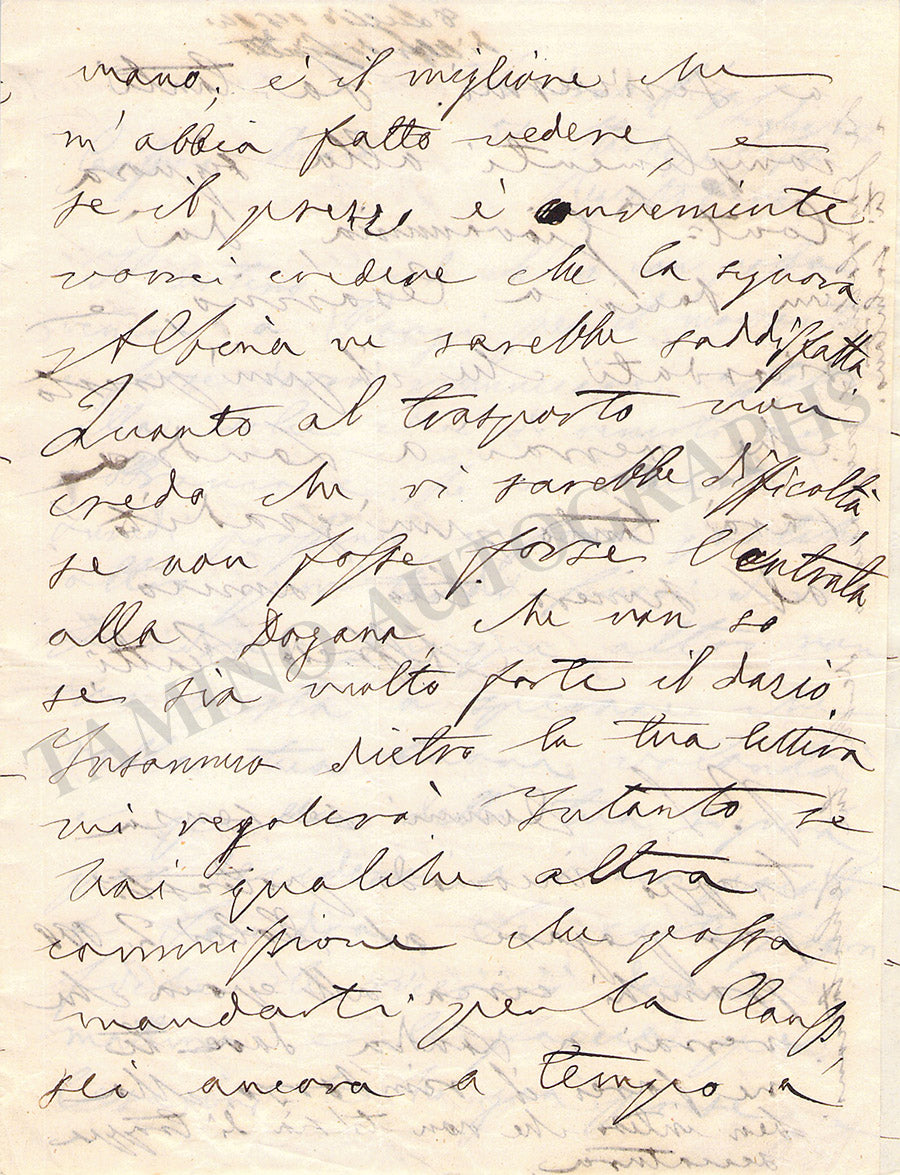 mano, è il migliore che
m'abbia fatto vedere, e
se il prezzo è conveniente
vorrei credere che la signora
Albina ne sarebbe soddisfatta.
Quanto al trasporto non
credo che vi sarebbe difficoltà,
se non fosse forse l'entrata
alla Dogana, che non so
se sia molto forte il dazio.
Insomma dietro la tua lettera
mi regolerò. Intanto se
hai qualche altra
commissione che possa
mandarti per la
sei ancora a tempo a
TAMINO AUTOGRAPHS